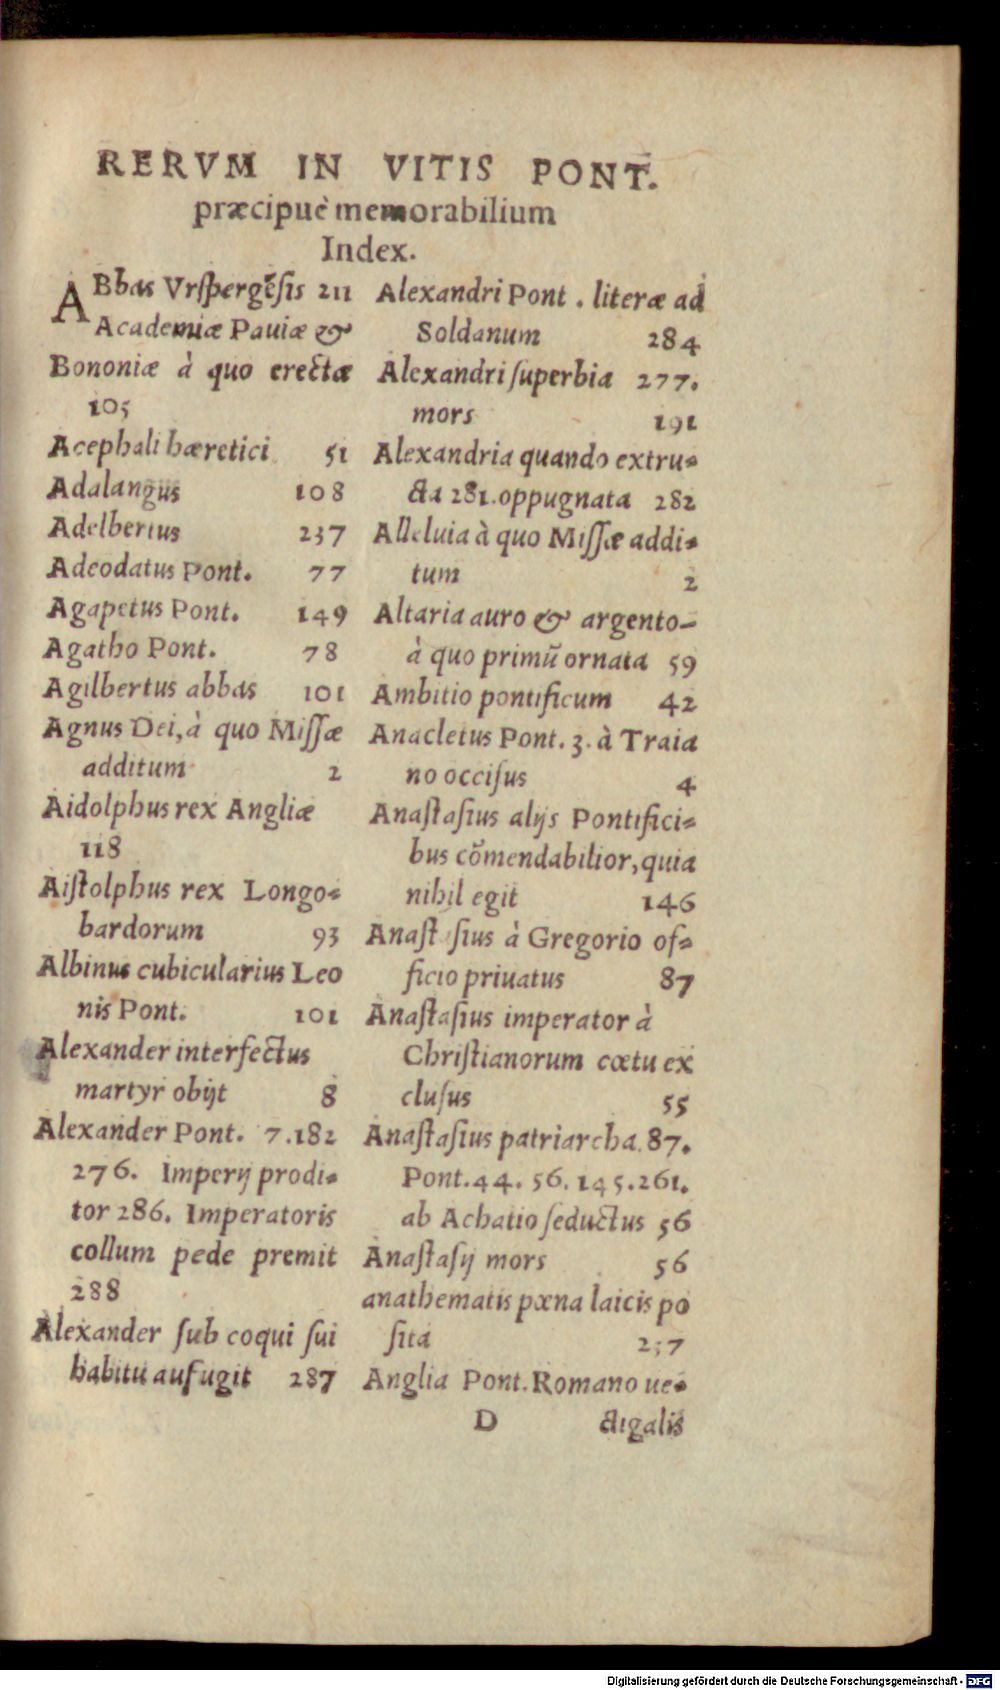 RERVM IN VITIS PONT.
præcipuè memorabilium
Index.
ABbas Vrſpergẽſis 211
Academiæ Pauiæ &
Bononiæ à quo erectæ
105
Acephali hæretici 51
Adalangus 108
Adelbertus 237
Adeodatus Pont. 77
Agapetus Pont. 149
Agatho Pont. 78
Agilbertus abbas 101
Agnus Dei, à quo Miſſæ
additum 2
Aidolphus rex Angliæ
118
Aiſtolphus rex Longo-
bardorum 93
Albinus cubicularius Leo
nis Pont. 101
Alexander interfectus
martyr obijt 8
Alexander Pont. 7.182
276. Imperij prodi-
tor 286. Imperatoris
collum pede premit
288
Alexander ſub coqui ſui
habitu aufugit 287
Alexandri Pont. literæ ad
Soldanum 284
Alexandri ſuperbia 277.
mors 191
Alexandria quando extru-
cta 281. oppugnata 282
Alleluia à quo Miſſæ addi-
tum 2
Altaria auro & argento-
à quo primũ ornata 59
Ambitio pontificum 42
Anacletus Pont. 3. à Traia
no occiſus 4
Anaſtaſius alijs Pontifici-
bus cõmendabilior, quia
nihil egit 146
Anaſt ſius à Gregorio of-
ficio priuatus 87
Anaſtaſius imperator à
Chriſtianorum cœtu ex
cluſus 55
Anaſtaſius patriarcha. 87.
Pont. 44. 56. 145. 261.
ab Achatio ſeductus 56
Anaſtaſij mors 56
anathematis pœna laicis po
ſita 237
Anglia Pont. Romano ue-
D ctigalis
Digitalisierung gefördert durch die Deutsche Forschungsgemeinschaft - DFG